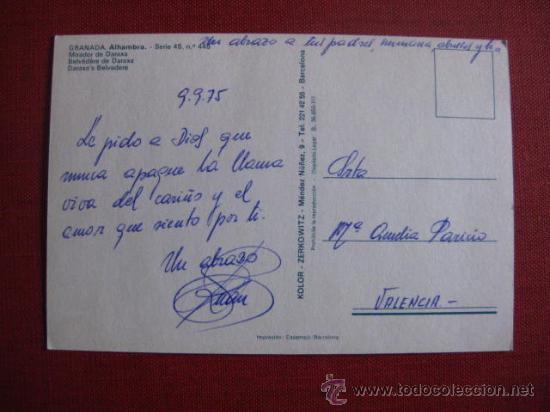 GRANADA. Alhambra. - Serie 45, n.º 446
Mirador de Daraxa
Belvédère de Daraxa
Daraxa's Belvedere
Un abrazo a tus padres, hermana, abuelos y
9.9.75
Le pido a Dios que
nunca apague la llama
viva del cariño y el
amor que siento por ti.
Un abrazo
Juan
KOLOR - ZERKOWITZ - Méndez Núñez, 9 - Tel. 221 42 58 - Barcelona
Prohibida la reproducción - Depósito Legal B.
Srta
Mª Amelia Pariño
VALENCIA.-
Impresión: Casamajó (Barcelona)
todocoleccion
www.todocoleccion.net